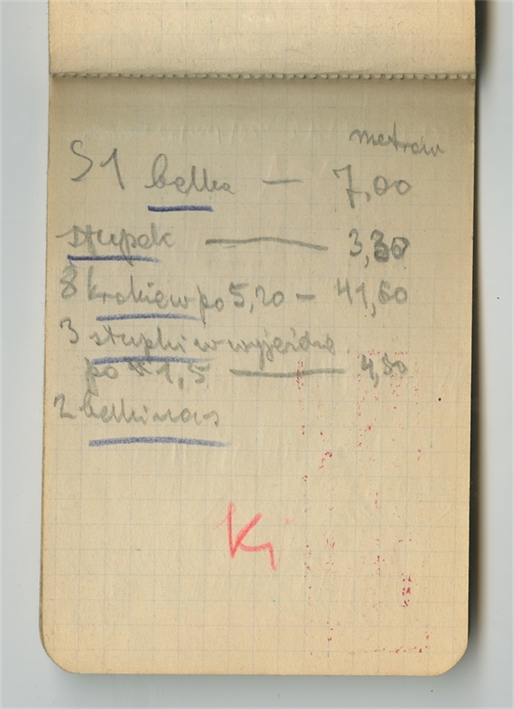 metrów
S1 belka — 7,00
słupek — 3,30
8 krokiew po 5,20 — 41,60
3 słupki w wyjeździe
po 1,5 — 4,50
2 belki nas
K,